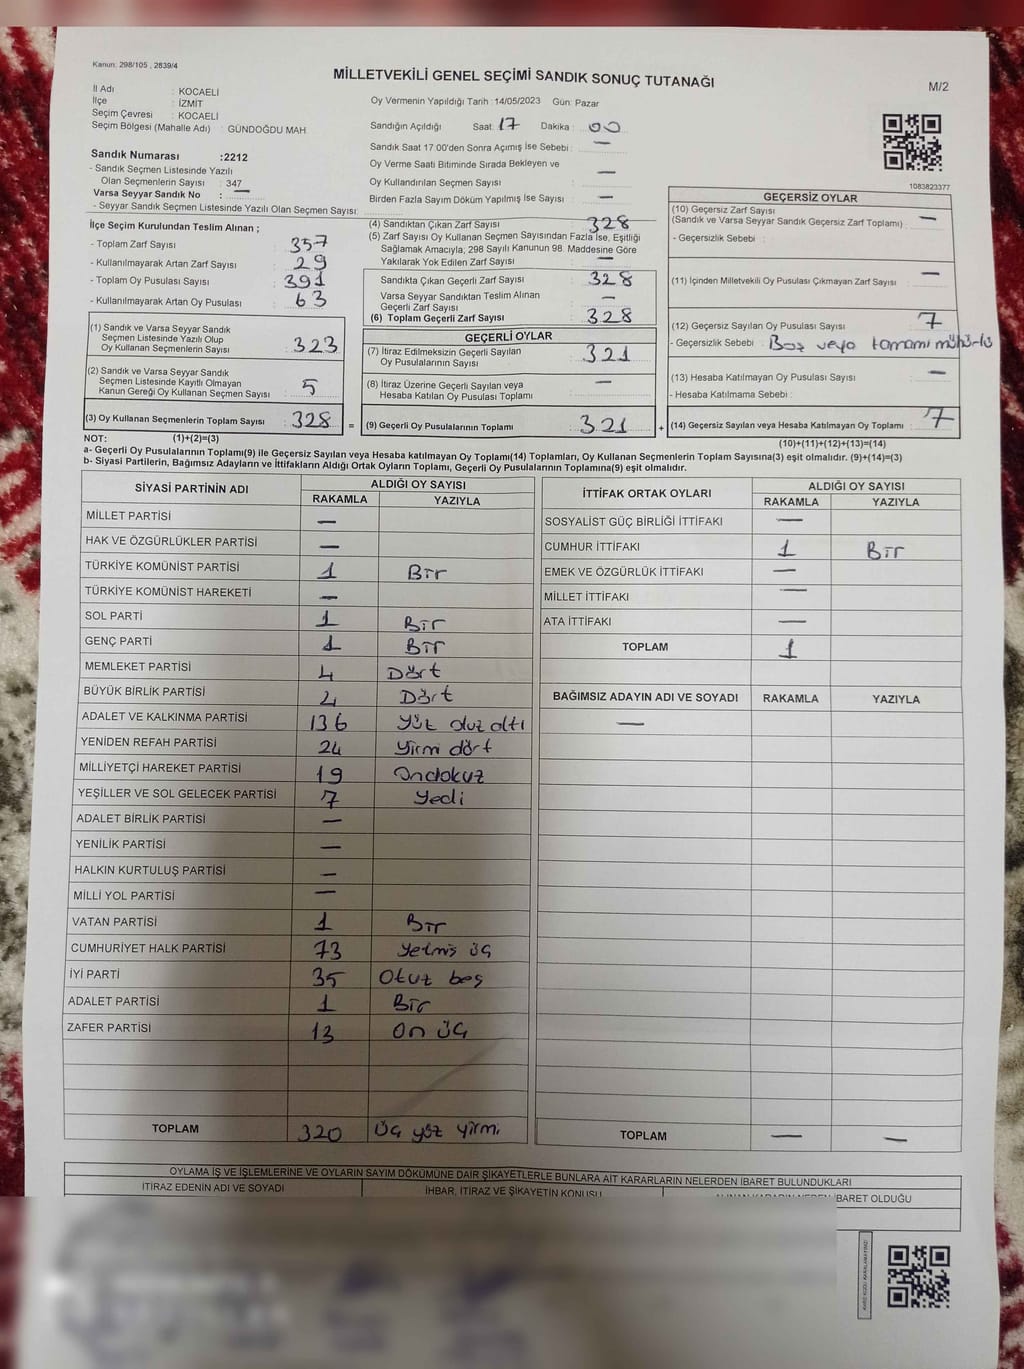 Kanun: 298/105 , 2839/4
MİLLETVEKİLİ GENEL SEÇİMİ SANDIK SONUÇ TUTANAĞI
M/2
İl Adı : KOCAELİ
İlçe : İZMİT
Seçim Çevresi : KOCAELİ
Seçim Bölgesi (Mahalle Adı) : GÜNDOĞDU MAH
Sandık Numarası :2212
- Sandık Seçmen Listesinde Yazılı
Olan Seçmenlerin Sayısı : 347
Varsa Seyyar Sandık No : —
- Seyyar Sandık Seçmen Listesinde Yazılı Olan Seçmen Sayısı:
Oy Vermenin Yapıldığı Tarih :14/05/2023 Gün: Pazar
Sandığın Açıldığı Saat: 17 Dakika : 00
Sandık Saat 17 00'den Sonra Açımış İse Sebebi : —
Oy Verme Saati Bitiminde Sırada Bekleyen ve
Oy Kullandırılan Seçmen Sayısı : —
Birden Fazla Sayım Döküm Yapılmış İse Sayısı : —
1083823377
İlçe Seçim Kurulundan Teslim Alınan ;
- Toplam Zarf Sayısı : 357
- Kullanılmayarak Artan Zarf Sayısı : 29
- Toplam Oy Pusulası Sayısı : 391
- Kullanılmayarak Artan Oy Pusulası : 63
(1) Sandık ve Varsa Seyyar Sandık
Seçmen Listesinde Yazılı Olup
Oy Kullanan Seçmenlerin Sayısı : 323
(2) Sandık ve Varsa Seyyar Sandık
Seçmen Listesinde Kayıtlı Olmayan
Kanun Gereği Oy Kullanan Seçmen Sayısı : 5
(3) Oy Kullanan Seçmenlerin Toplam Sayısı : 328 =
(4) Sandıktan Çıkan Zarf Sayısı : 328
(5) Zarf Sayısı Oy Kullanan Seçmen Sayısından Fazla İse, Eşitliği
Sağlamak Amacıyla; 298 Sayılı Kanunun 98. Maddesine Göre
Yakılarak Yok Edilen Zarf Sayısı : —
Sandıkta Çıkan Geçerli Zarf Sayısı : 328
Varsa Seyyar Sandıktan Teslim Alınan
Geçerli Zarf Sayısı : —
(6) Toplam Geçerli Zarf Sayısı : 328
GEÇERLİ OYLAR
(7) İtiraz Edilmeksizin Geçerli Sayılan
Oy Pusulalarının Sayısı : 321
(8) İtiraz Üzerine Geçerli Sayılan veya
Hesaba Katılan Oy Pusulası Toplamı : —
(9) Geçerli Oy Pusulalarının Toplamı : 321 +
GEÇERSİZ OYLAR
(10) Geçersiz Zarf Sayısı
(Sandık ve Varsa Seyyar Sandık Geçersiz Zarf Toplamı) : —
- Geçersizlik Sebebi :
(11) İçinden Milletvekili Oy Pusulası Çıkmayan Zarf Sayısı : —
(12) Geçersiz Sayılan Oy Pusulası Sayısı : 7
- Geçersizlik Sebebi : Boş veya tamamı mühürlü
(13) Hesaba Katılmayan Oy Pusulası Sayısı : —
- Hesaba Katılmama Sebebi :
(14) Geçersiz Sayılan veya Hesaba Katılmayan Oy Toplamı : 7
NOT: (1)+(2)=(3)
(10)+(11)+(12)+(13)=(14)
a- Geçerli Oy Pusulalarının Toplamı(9) ile Geçersiz Sayılan veya Hesaba katılmayan Oy Toplamı(14) Toplamları, Oy Kullanan Seçmenlerin Toplam Sayısına(3) eşit olmalıdır. (9)+(14)=(3)
b- Siyasi Partilerin, Bağımsız Adayların ve İttifakların Aldığı Ortak Oyların Toplamı, Geçerli Oy Pusulalarının Toplamına(9) eşit olmalıdır.
SİYASİ PARTİNİN ADI ALDIĞI OY SAYISI
RAKAMLA YAZIYLA
MİLLET PARTİSİ —
HAK VE ÖZGÜRLÜKLER PARTİSİ —
TÜRKİYE KOMÜNİST PARTİSİ 1 Bir
TÜRKİYE KOMÜNİST HAREKETİ —
SOL PARTİ 1 Bir
GENÇ PARTİ 1 Bir
MEMLEKET PARTİSİ 4 Dört
BÜYÜK BİRLİK PARTİSİ 4 Dört
ADALET VE KALKINMA PARTİSİ 136 Yüz otuz altı
YENİDEN REFAH PARTİSİ 24 Yirmi dört
MİLLİYETÇİ HAREKET PARTİSİ 19 Ondokuz
YEŞİLLER VE SOL GELECEK PARTİSİ 7 Yedi
ADALET BİRLİK PARTİSİ —
YENİLİK PARTİSİ —
HALKIN KURTULUŞ PARTİSİ —
MİLLİ YOL PARTİSİ —
VATAN PARTİSİ 1 Bir
CUMHURİYET HALK PARTİSİ 73 Yetmiş üç
İYİ PARTİ 35 Otuz beş
ADALET PARTİSİ 1 Bir
ZAFER PARTİSİ 13 On üç
TOPLAM 320 Üç yüz yirmi
İTTİFAK ORTAK OYLARI ALDIĞI OY SAYISI
RAKAMLA YAZIYLA
SOSYALİST GÜÇ BİRLİĞİ İTTİFAKI —
CUMHUR İTTİFAKI 1 Bir
EMEK VE ÖZGÜRLÜK İTTİFAKI —
MİLLET İTTİFAKI —
ATA İTTİFAKI —
TOPLAM 1
BAĞIMSIZ ADAYIN ADI VE SOYADI RAKAMLA YAZIYLA
—
TOPLAM — —
OYLAMA İŞ VE İŞLEMLERİNE VE OYLARIN SAYIM DÖKÜMÜNE DAİR ŞİKAYETLERLE BUNLARA AİT KARARLARIN NELERDEN İBARET BULUNDUKLARI
İTİRAZ EDENİN ADI VE SOYADI
İHBAR, İTİRAZ VE ŞİKAYETİN KONUSU
İBARET OLDUĞU